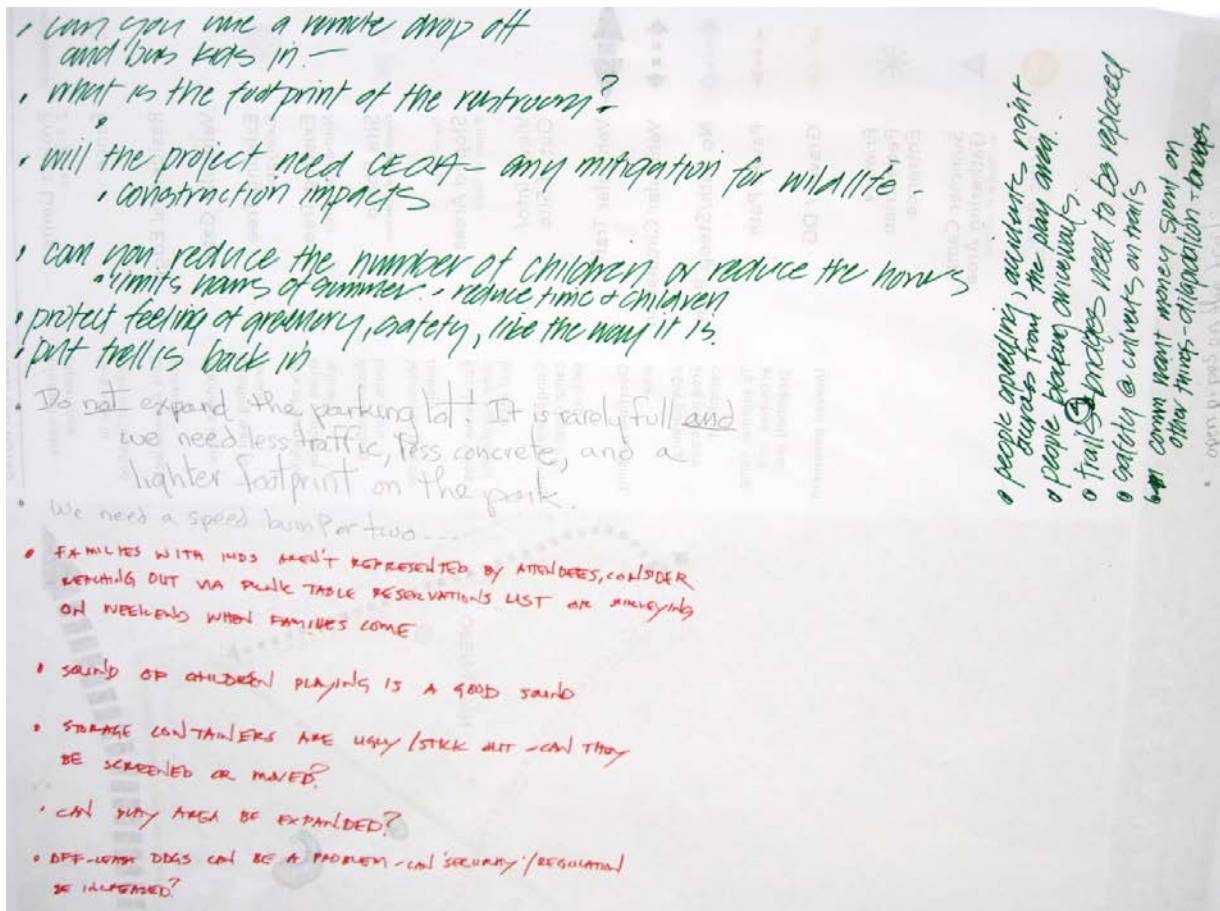 • can you use a remote drop off
and bus kids in. –
• what is the footprint of the restroom?
• will the project need CEQA – any mitigation for wildlife –
• construction impacts
• can you reduce the number of children or reduce the hours
• limits hours of summer. – reduce time & children
• protect feeling of greenery, safety, like the way it is.
• put trellis back in
• Do not expand the parking lot! It is rarely full and
we need less traffic, less concrete, and a
lighter footprint on the park.
• We need a speed bump or two....
• FAMILIES WITH KIDS AREN'T REPRESENTED BY ATTENDEES, CONSIDER
REACHING OUT VIA PICNIC TABLE RESERVATIONS LIST OR SURVEYING
ON WEEKEND WHEN FAMILIES COME
• SOUND OF CHILDREN PLAYING IS A GOOD SOUND
• STORAGE CONTAINERS ARE UGLY / STICK OUT – CAN THEY
BE SCREENED OR MOVED?
• CAN PLAY AREA BE EXPANDED?
• OFF-LEASH DOGS CAN BE A PROBLEM – CAN 'SECURITY' / REGULATION
BE INCREASED?
• people speeding, accidents right
across from the play area..
• people backing driveways.
• trails bridges need to be replaced
• safety @ culverts on trails
comm want money spent on
other things – dilapidation + bridges